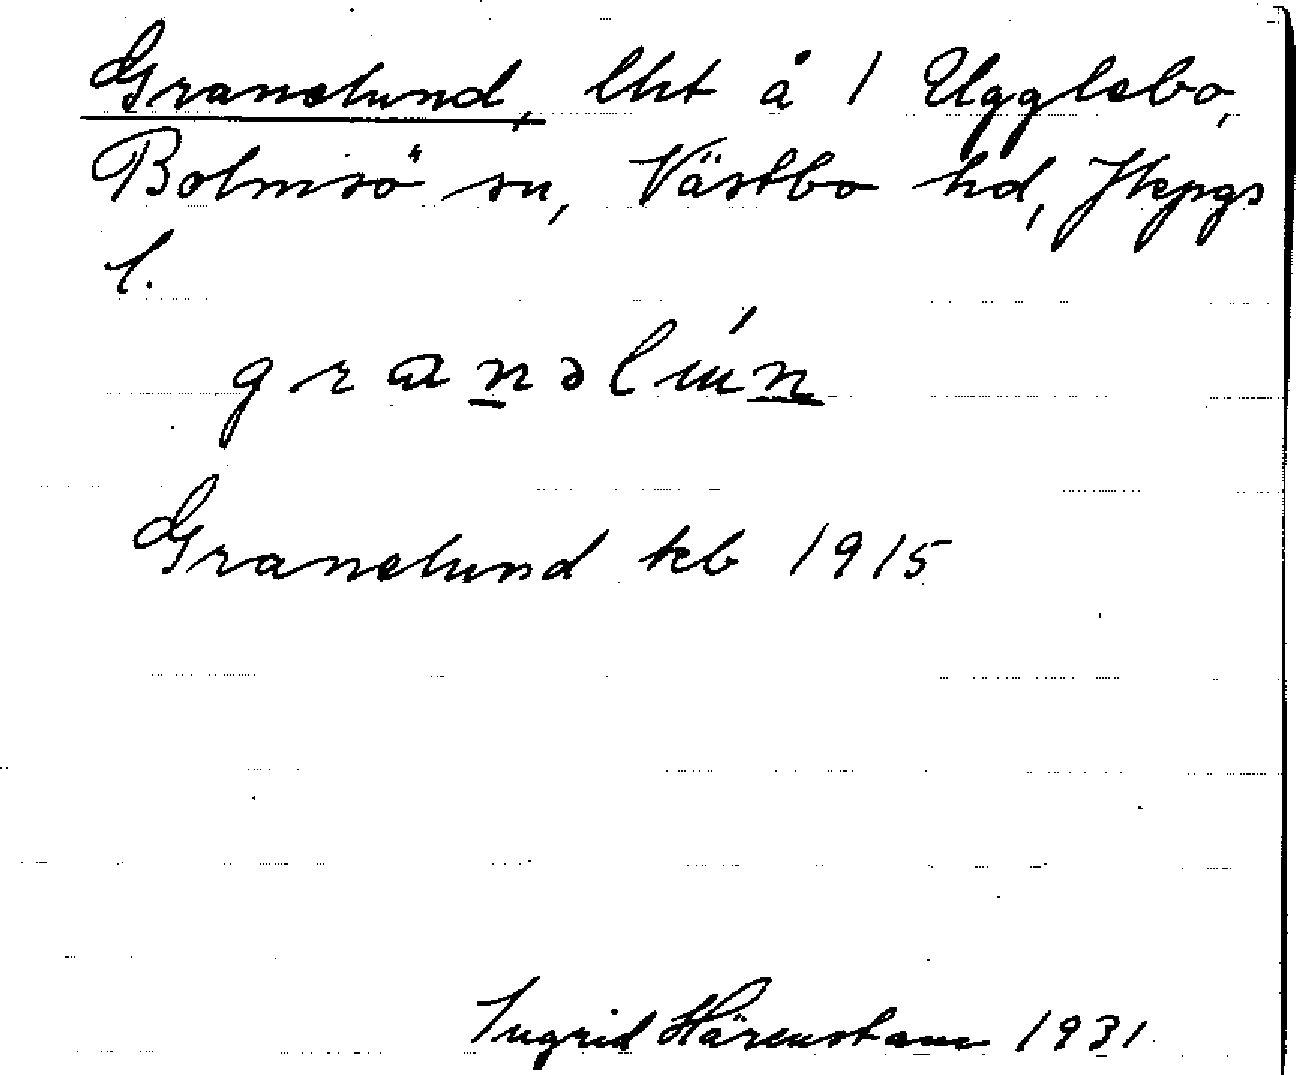 Granelund, lht å 1 Ugglebo,
Bolmsö sn, Västbo hd, Jkpgs
l.
granəlún
Granelund kb 1915
Ingrid Härenstam 1931